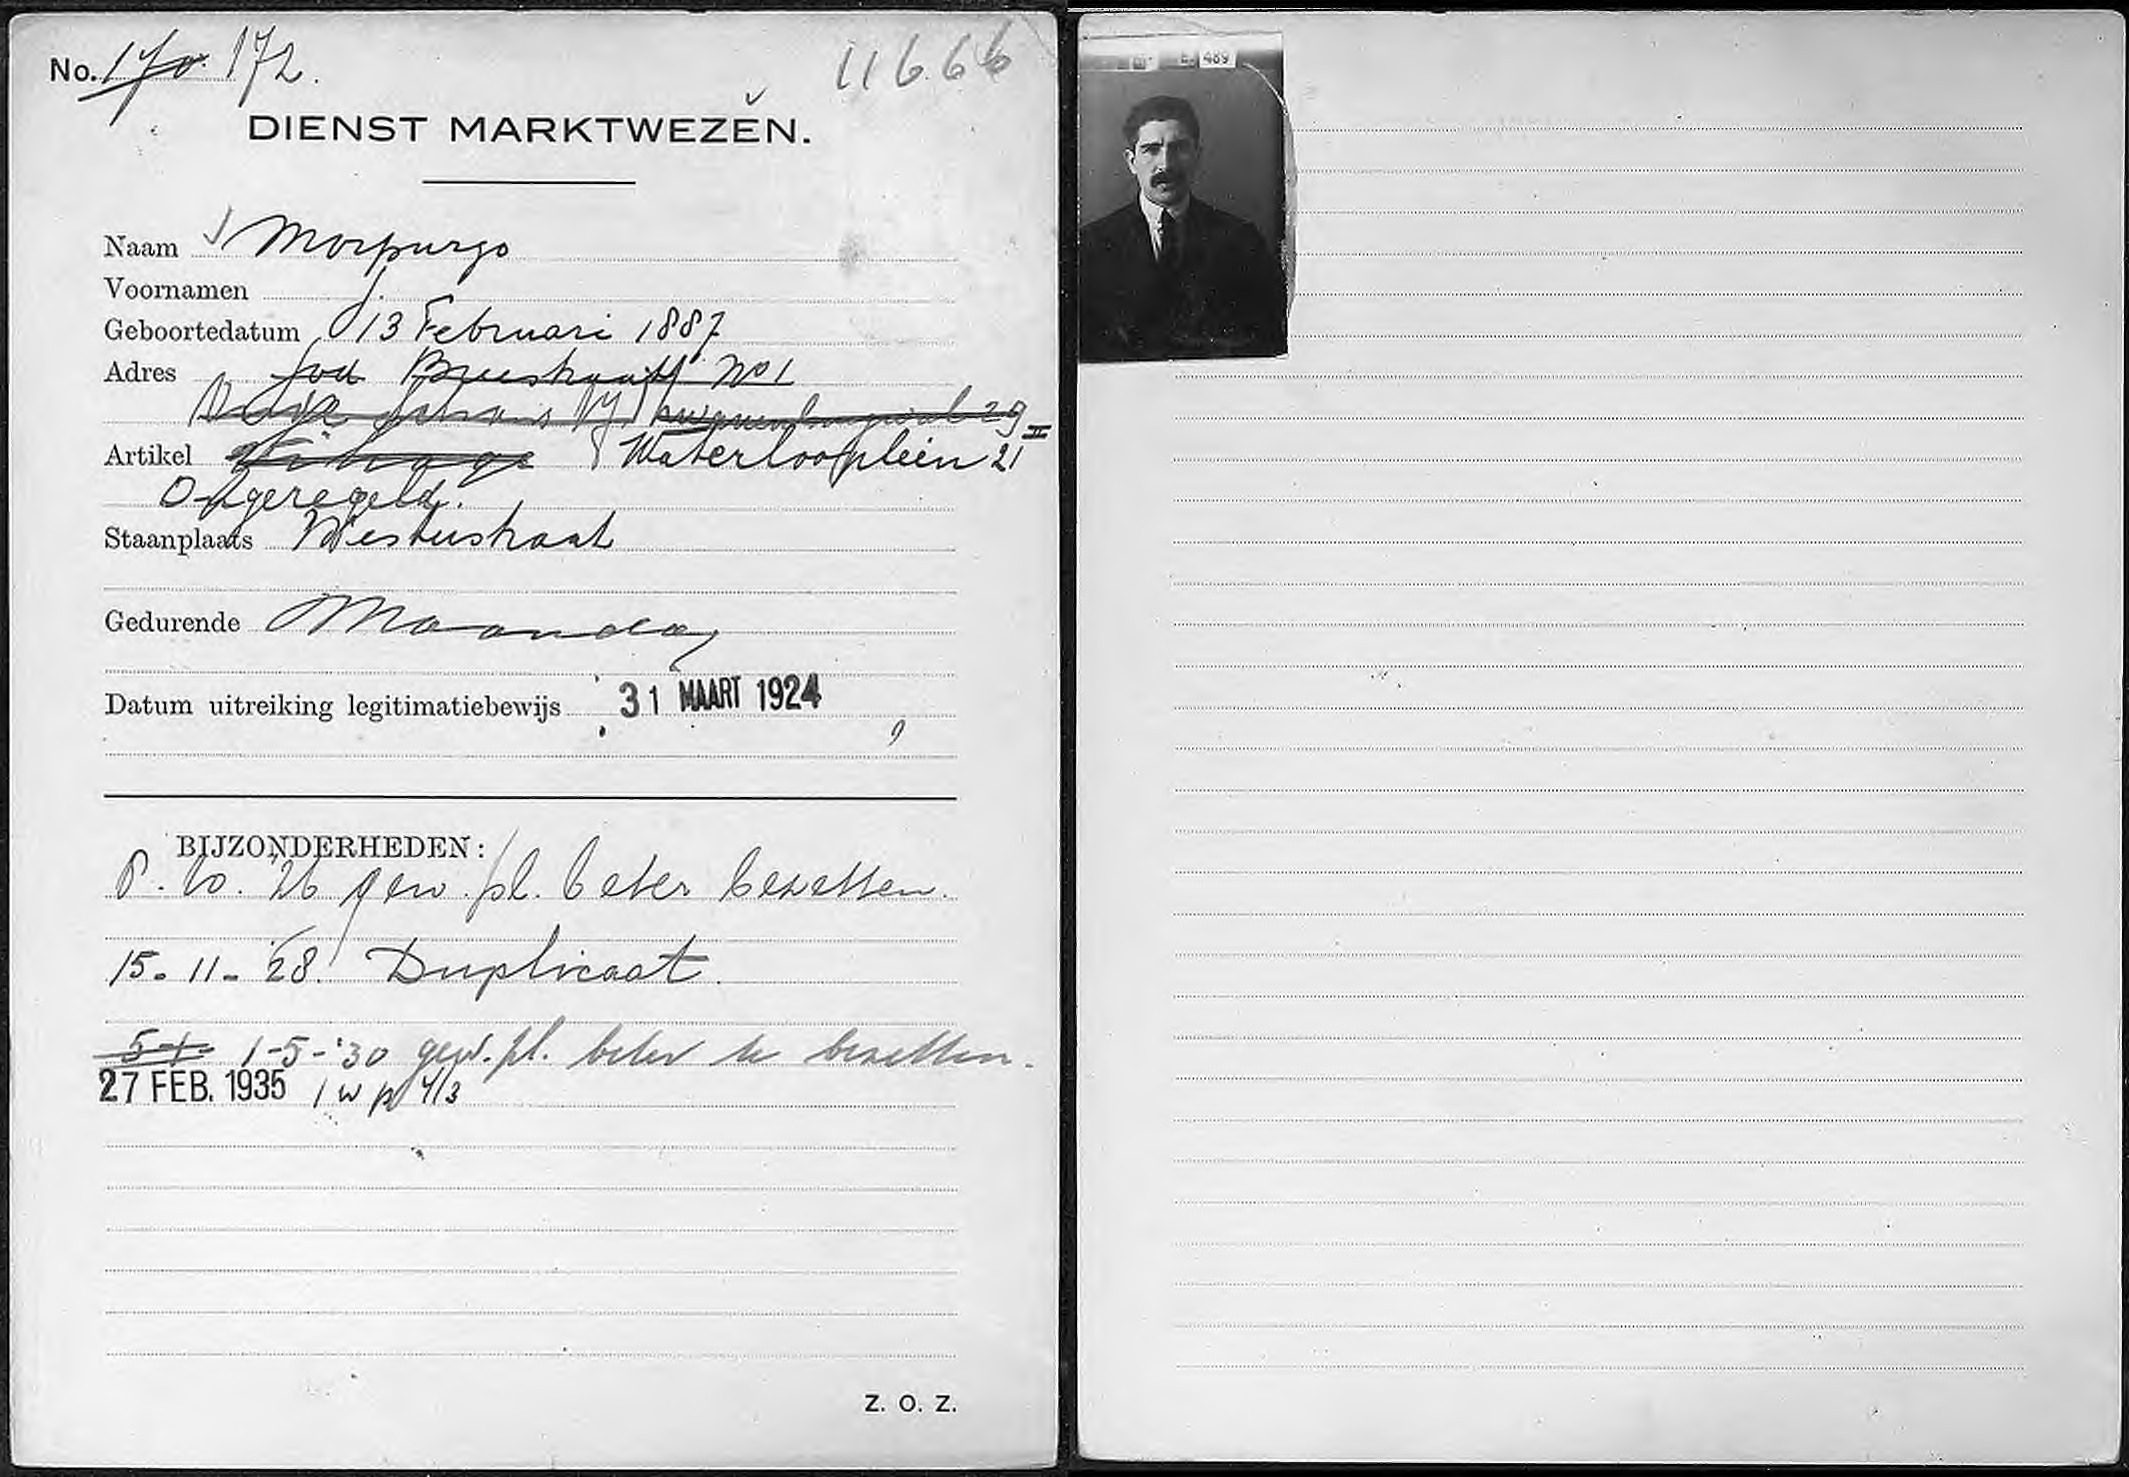 No. 170. 172. 11666
DIENST MARKTWEZEN.
Naam Morpurgo
Voornamen J.
Geboortedatum 13 Februari 1887
Adres Jod Breestraat No 1
29 II
Artikel Waterlooplein 21
Ongeregeld.
Staanplaats Westerstraat
Gedurende Maandag
Datum uitreiking legitimatiebewijs 31 MAART 1924
BIJZONDERHEDEN:
8.10.'26 gew. pl. beter bezetten.
15-11-'28. Duplicaat.
1-5-'30 gew. pl. beter te bezetten.
27 FEB. 1935 1 w p 4/3
Z. O. Z.
489